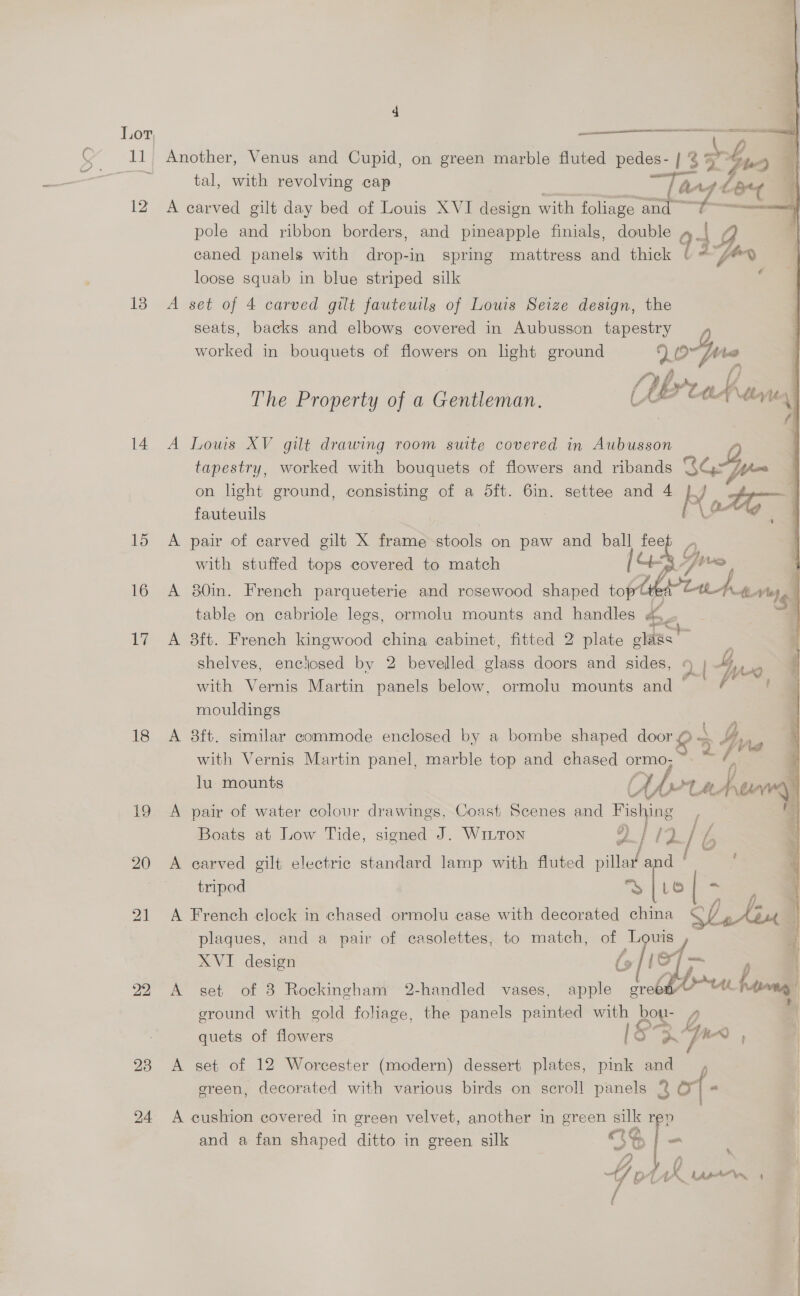 4
Lot
11 Another, Venus and Cupid, on green marble fluted pedes-
tal, with revolving cap
12 A carved gilt day bed of Louis XVI design with foliage and
pole and ribbon borders, and pineapple finials, double
caned panels with drop-in spring mattress and thick
loose squab in blue striped silk
13 A set of 4 carved gilt fauteuils of Louis Seize design, the
seats, backs and elbows covered in Aubusson tapestry
worked in bouquets of flowers on light ground
The Property of a Gentleman.
14 A Louis XV gilt drawing room suite covered in Aubusson
tapestry, worked with bouquets of flowers and ribands
on light ground, consisting of a 5ft. 6in. settee and 4
fauteuils
15 A pair of carved gilt X frame stools on paw and ball feet
with stuffed tops covered to match
16 A 30in. French parqueterie and rosewood shaped top
table on cabriole legs, ormolu mounts and handles
17 A 3ft. French kingwood china cabinet, fitted 2 plate glass
shelves, enclosed by 2 bevelled glass doors and sides,
with Vernis Martin panels below, ormolu mounts and
mouldings
18 A 3ft. similar commode enclosed by a bombe shaped door
with Vernis Martin panel, marble top and chased ormo-
lu mounts
19 A pair of water colour drawings, Coast Scenes and Fishing
Boats at Low Tide, signed J. Wilton
20 A carved gilt electric standard lamp with fluted pillar and
tripod
21 A French clock in chased ormolu case with decorated china
plaques, and a pair of casolettes, to match, of Louis
XVI design
22 A set of 3 Rockingham 2-handled vases, apple green
ground with gold foliage, the panels painted with bou-
quets of flowers
23 A set of 12 Worcester (modern) dessert plates, pink and
green, decorated with various birds on scroll panels
24 A cushion covered in green velvet, another in green silk rep
and a fan shaped ditto in green silk